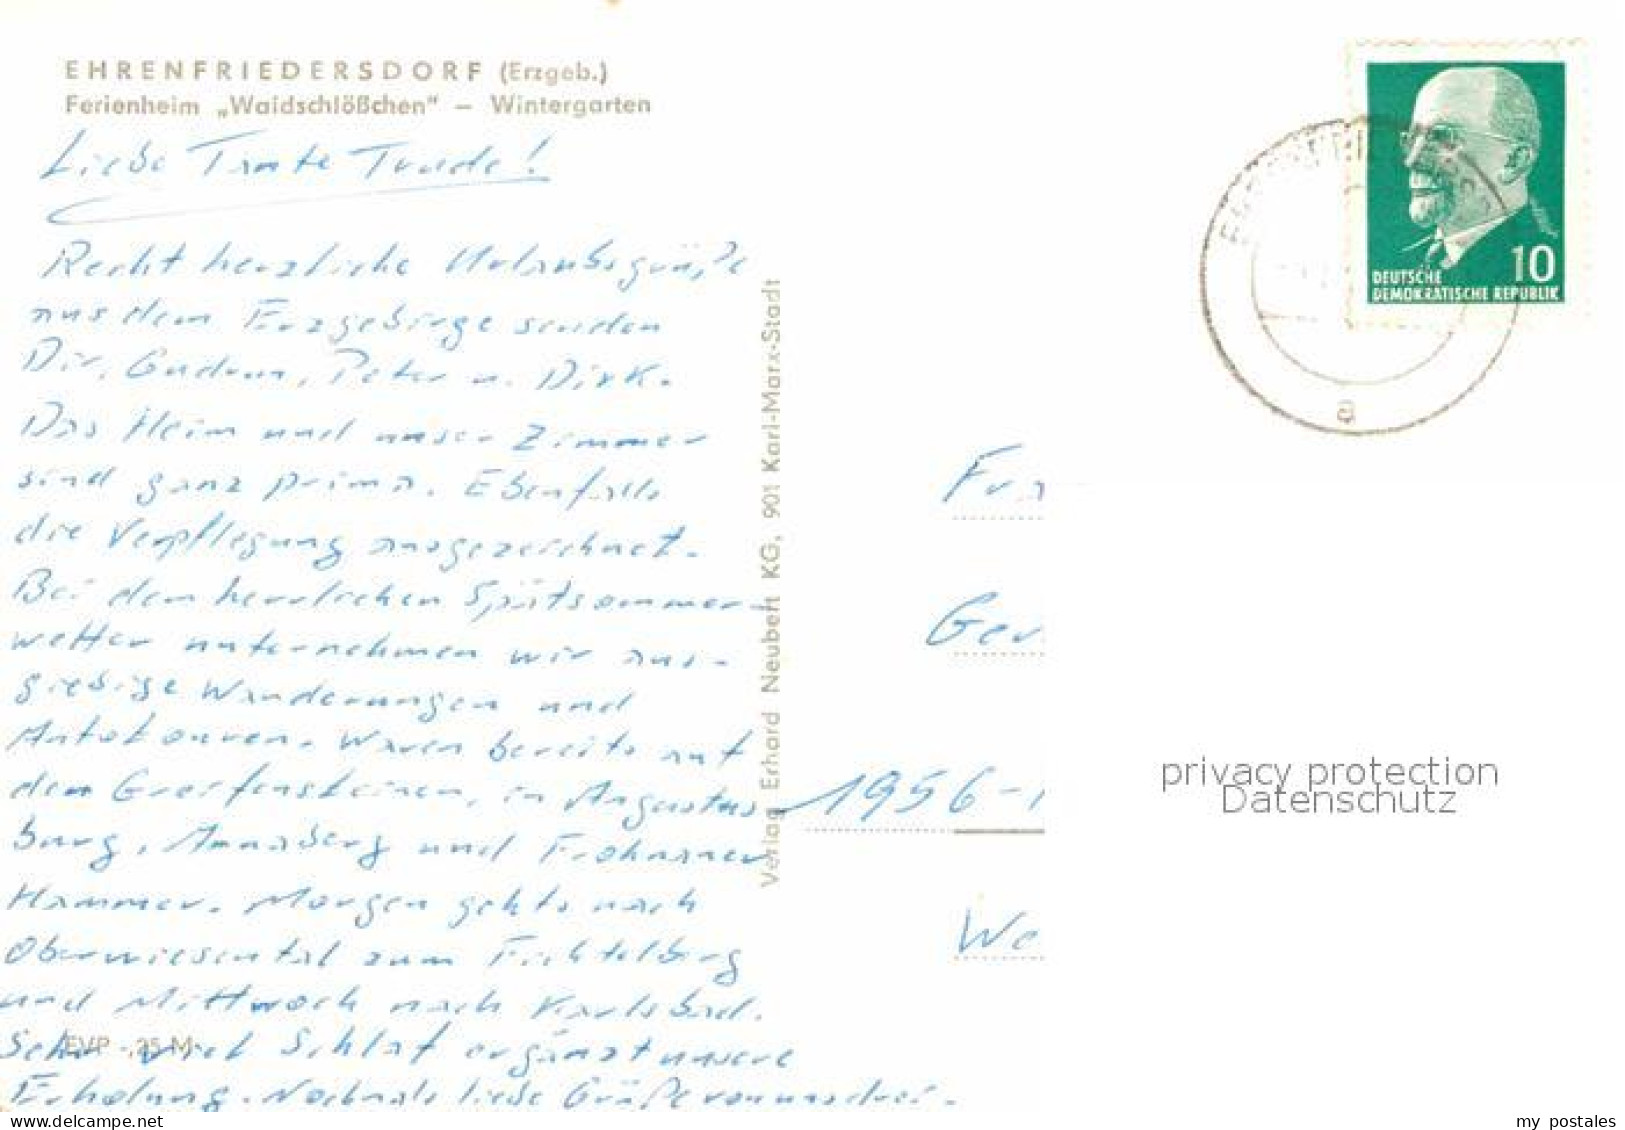 EHRENFRIEDERSDORF (Erzgeb.)
Ferienheim „Waldschlößchen" — Wintergarten
Liebe Tante Trude!
Recht herzliche Urlaubsgrüße
aus dem Erzgebirge senden
Dir, Gudrun, Peter u. Dirk.
Das Heim und unser Zimmer
sind ganz prima. Ebenfalls
die Verpflegung ausgezeichnet.
Bei dem herrlichen Spätsommer-
wetter unternehmen wir aus-
giebige Wanderungen und
Autotouren. Waren bereits auf
den Greifensteinen, in Augustus
burg, Annaberg und Frohnauer
Hammer. Morgen gehts nach
Oberwiesental zum Fichtelberg
und Mittwoch nach Karlsbad.
Sehr viel Schlaf ergänzt unsere
Erholung. Nochmals liebe Grüße von uns drei.
EVP -,25 M
Verlag Erhard Neubert KG, 901 Karl-Marx-Stadt
10
DEUTSCHE
DEMOKRATISCHE REPUBLIK
a
Fra
Ger
1956-
We
privacy protection
Datenschutz
my postales
delcampe.net